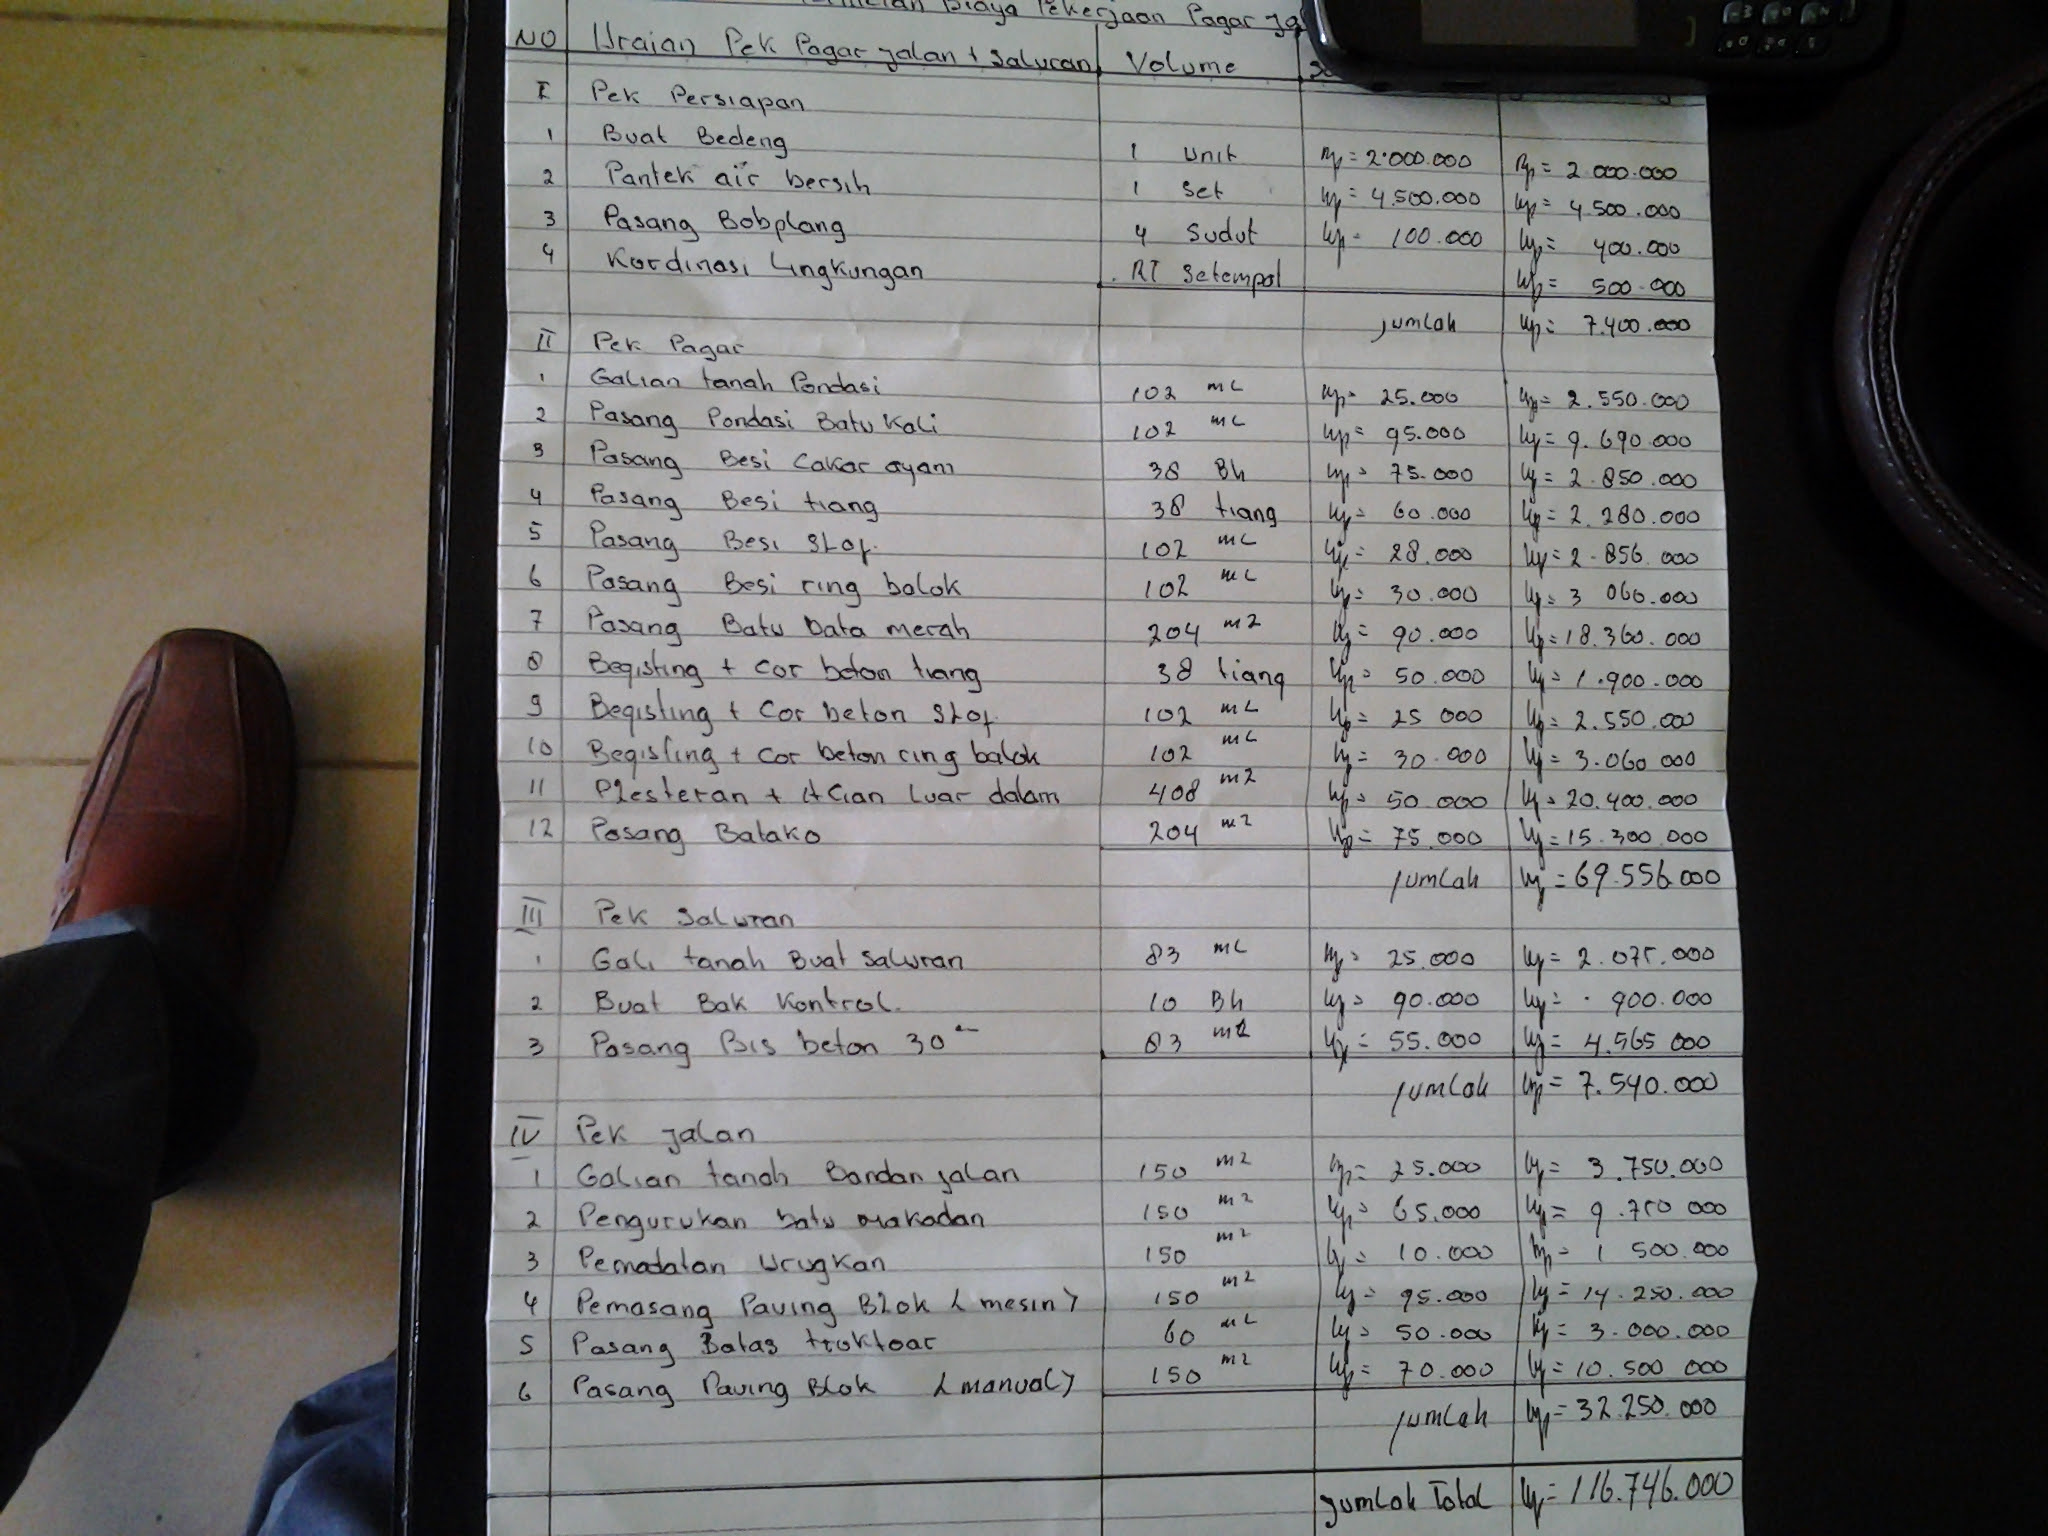 Biaya Pekerjaan Pagar Ja
NO Uraian Pek Pagar jalan + Saluran Volume
I Pek Persiapan
1 Buat Bedeng 1 Unit Rp = 2.000.000 Rp = 2.000.000
2 Pantek air bersih 1 Set Rp = 4.500.000 Rp = 4.500.000
3 Pasang Bobplang 4 Sudut Rp = 100.000 Rp = 400.000
4 Kordinasi Lingkungan RT Setempat Rp = 500.000
jumlah Rp = 7.400.000
II Pek Pagar
1 Galian tanah Pondasi 102 mL Rp = 25.000 Rp = 2.550.000
2 Pasang Pondasi Batu Kali 102 mL Rp = 95.000 Rp = 9.690.000
3 Pasang Besi Cakar ayam 38 Bh Rp = 75.000 Rp = 2.850.000
4 Pasang Besi tiang 38 tiang Rp = 60.000 Rp = 2.280.000
5 Pasang Besi Slof 102 mL Rp = 28.000 Rp = 2.856.000
6 Pasang Besi ring balok 102 mL Rp = 30.000 Rp = 3 060.000
7 Pasang Batu bata merah 204 m2 Rp = 90.000 Rp = 18.360.000
8 Begisting + Cor beton tiang 38 tiang Rp = 50.000 Rp = 1.900.000
9 Begisting + Cor beton Slof 102 mL Rp = 25 000 Rp = 2.550.000
10 Begisting + Cor beton ring balok 102 mL Rp = 30.000 Rp = 3.060 000
11 Plesteran + Acian Luar dalam 408 m2 Rp = 50.000 Rp = 20.400.000
12 Pasang Batako 204 m2 Rp = 75.000 Rp = 15.300.000
jumlah Rp = 69.556.000
III Pek Saluran
1 Gali tanah Buat Saluran 83 mL Rp = 25.000 Rp = 2.075.000
2 Buat Bak Kontrol. 10 Bh Rp = 90.000 Rp = 900.000
3 Pasang Bis beton 30 83 Rp = 55.000 Rp = 4.565 000
jumlah Rp = 7.540.000
IV Pek jalan
1 Galian tanah Bandan jalan 150 m2 Rp = 25.000 Rp = 3.750.000
2 Pengurukan batu makadan 150 m2 Rp = 65.000 Rp = 9.750 000
3 Pemadatan Urugkan 150 m2 Rp = 10.000 Rp = 1 500.000
4 Pemasang Paving Blok (mesin) 150 m2 Rp = 95.000 Rp = 14.250.000
5 Pasang Batas troktoar 60 mL Rp = 50.000 Rp = 3.000.000
6 Pasang Paving Blok (manual) 150 m2 Rp = 70.000 Rp = 10.500 000
jumlah Rp = 32.250.000
jumlah Total Rp = 116.746.000